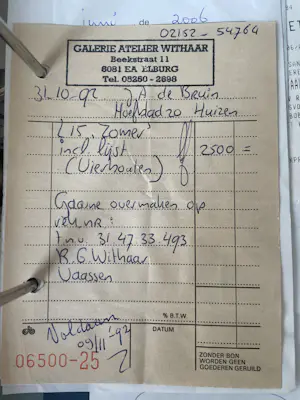 juni de 2006
02152-54764
GALERIE ATELIER WITHAAR
Beekstraat 11
8081 EA ELBURG
Tel. 05250 - 2898
31-10-92 J A. de Bruin
Hoefblad 20 Huizen
L 15 "Zomer"
incl. lijst ƒ 2500 =
(Vierhouten)
Gaarne overmaken op
rek.nr.:
t.n.v. 31.47.33.493
R.G. Withaar
Vaassen
Voldaan
09/11 '92
% B.T.W.
DATUM
06500-25
ZONDER BON
WORDEN GEEN
GOEDEREN GERUILD